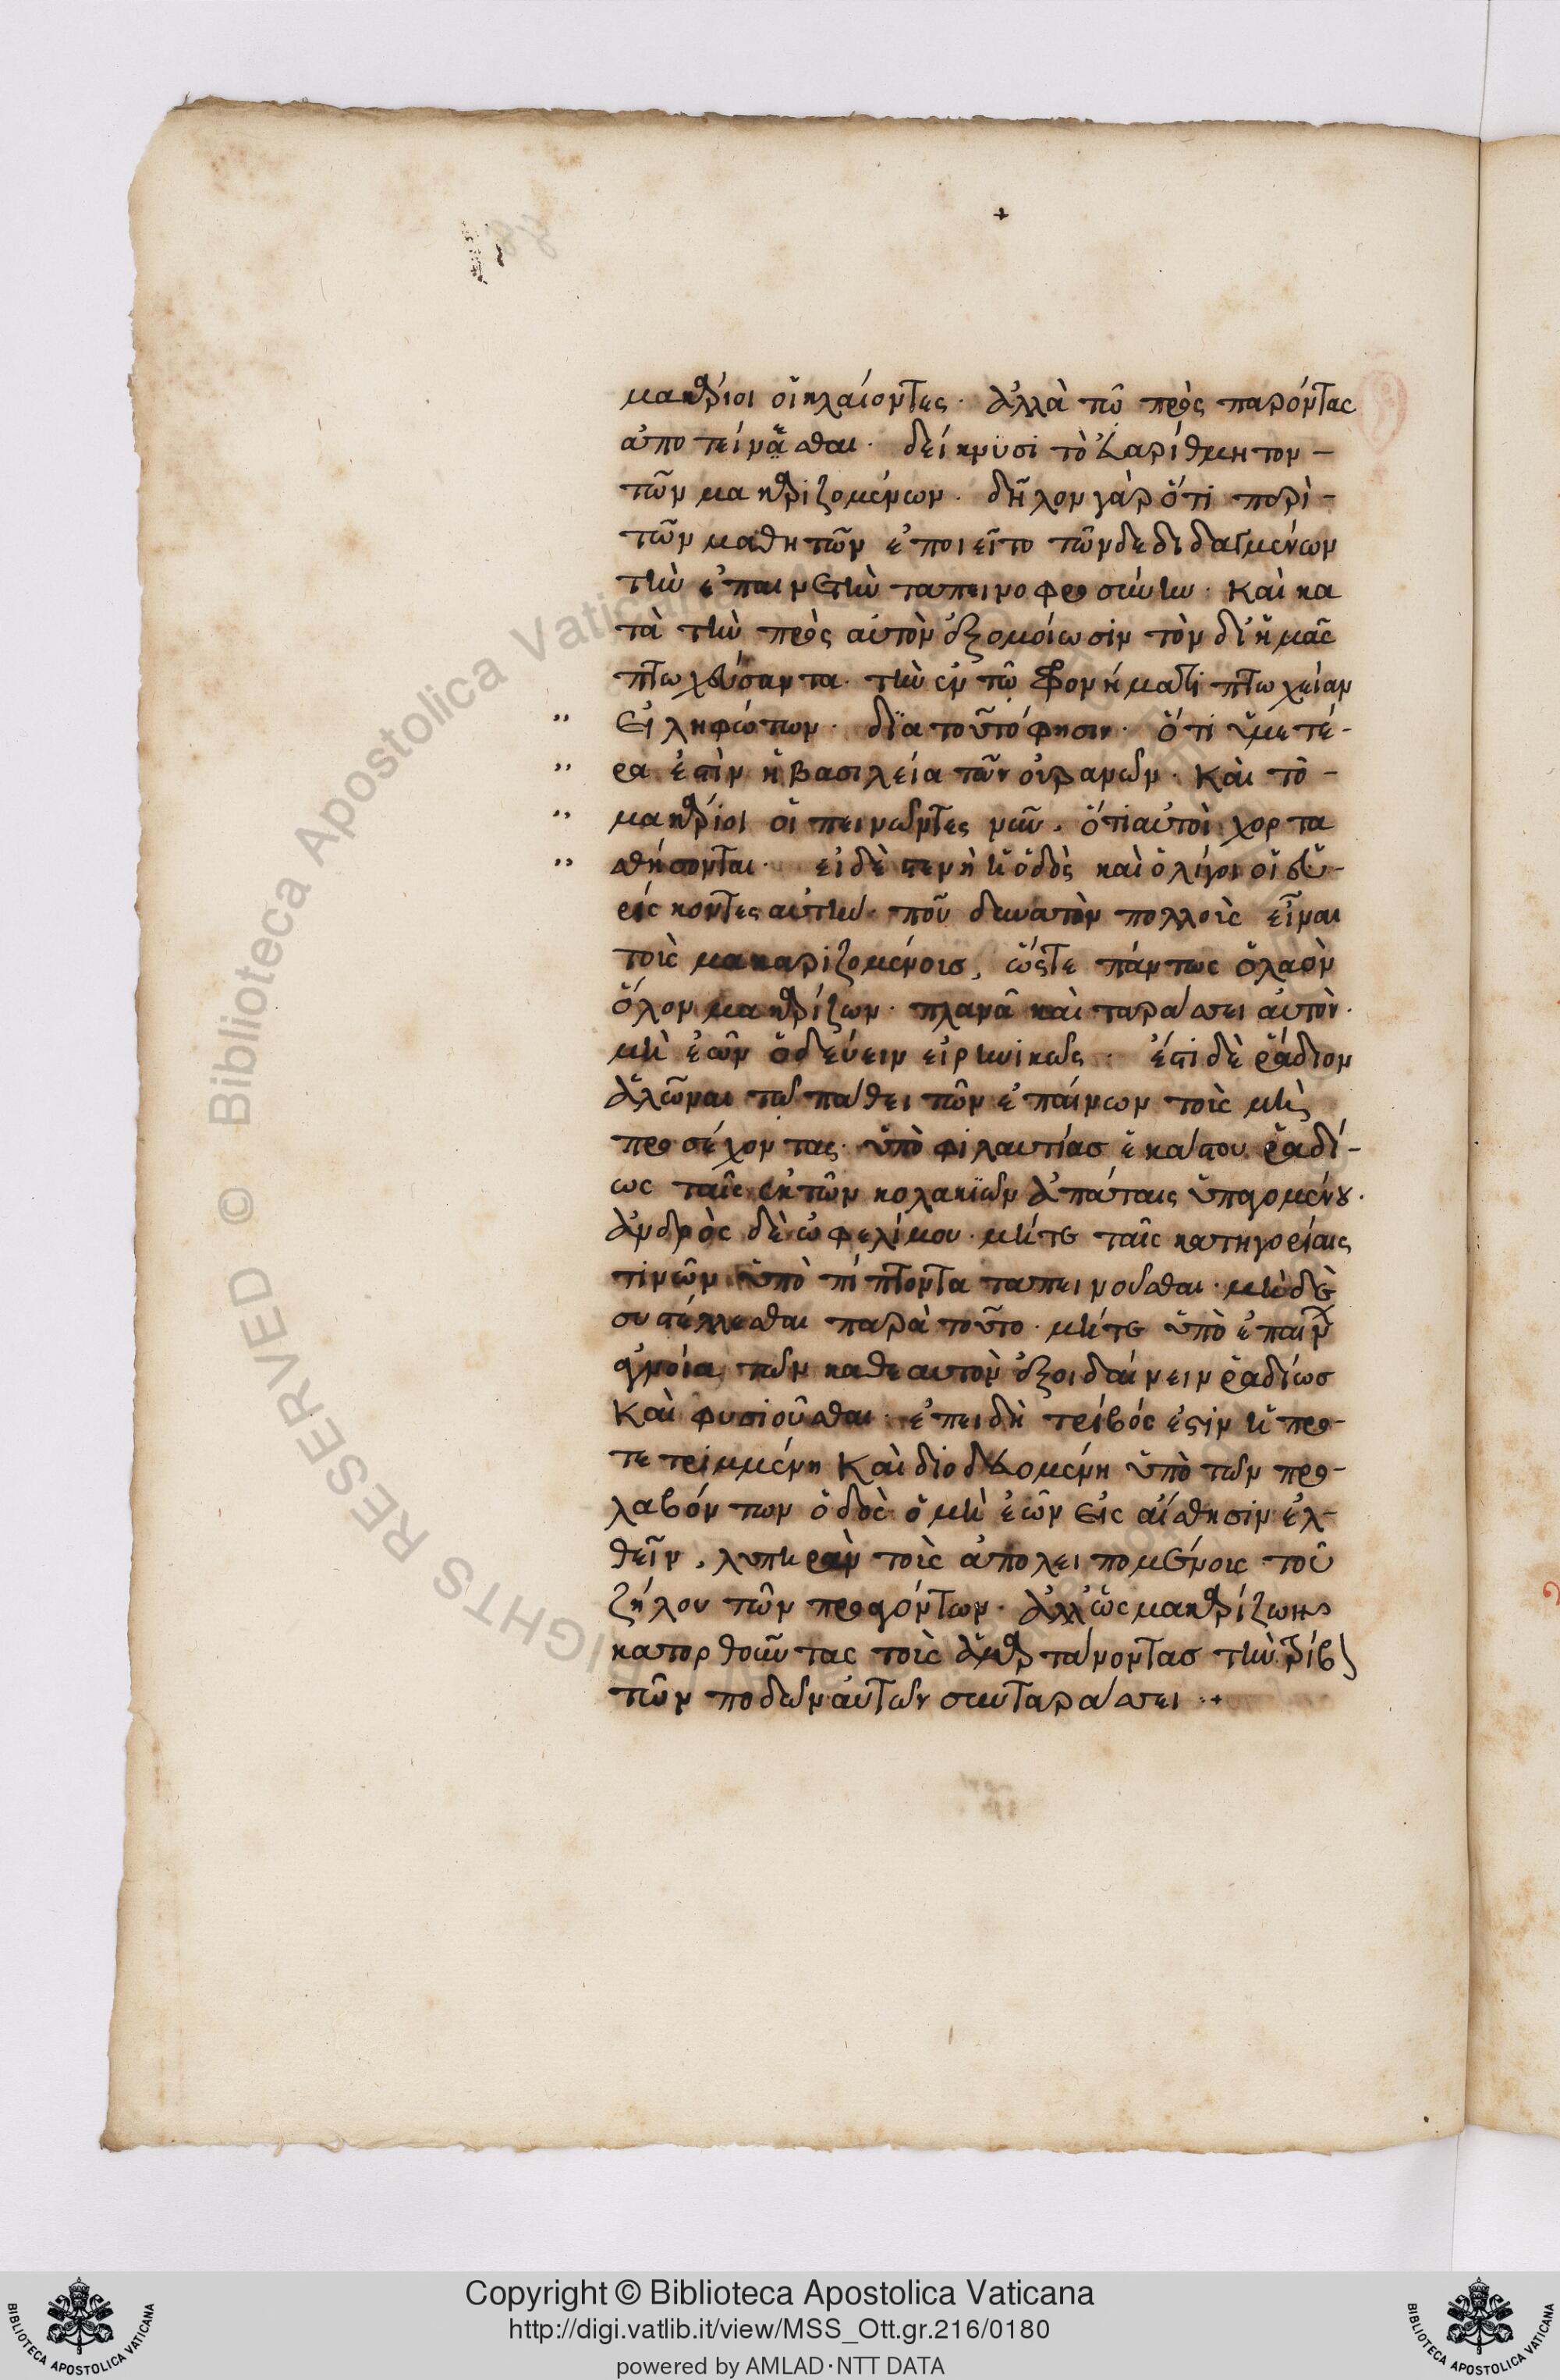 +
μακάριοι οἱ κλαίοντες· ἀλλὰ τῶ πρὸς παρόντας
ἀποτείνασθαι· δείκνυσι τὸ εὐαρίθμητον
τῶν μακαριζομένων· δῆλον γὰρ ὅτι περὶ
τῶν μαθητῶν ἐποιεῖτο τῶν δεδιδαγμένων
τὴν ἐπαινετὴν ταπεινοφροσύνην· καὶ κα
τὰ τὴν πρὸς αὐτὸν ἐξομοίωσιν τὸν δι ἡμᾶς
πτωχεύσαντα· τὴν ἐν τῶ φρονήματι πτωχείαν
εἰληφότων· δϊατοῦτό φησιν· ὅτι ὑμετέ-
ρα ἐστὶν ἡ βασιλεία τῶν οὐρανῶν· καὶ τὸ
μακάριοι οἱ πεινῶντες νῦν, ὅτι αὐτοὶ χορτα
σθήσονται· εἰ δὲ στενὴ ἡ ὁδὸς καὶ ὀλίγοι οἱ εὑ-
ρίσκοντες αὐτὴν· ποῦ δυνατὸν πολλοὺς εἶναι
τοὺς μακαριζομένους, ὥστε πάντως ὁ λαὸν
ὅλον μακαρίζων· πλανᾶ καὶ ταράσσει αὐτὸν·
μὴ ἐῶν ὁδεύειν εἰρηνικῶς· ἔστι δὲ ῥάδιον
ἁλῶναι τῶ πάθει τῶν ἐπαίνων τοὺς μὴ
προσέχοντας· ὑπὸ φιλαυτίας ἑκάστου ῥαδί-
ως ταῖς ἐκ τῶν κολακϊῶν ἀπάταις ὑπαγομένου·
ἀνδρὸς δὲ ὠφελίμου· μήτε ταῖς κατηγορίαις
τινῶν ὑποπίπτοντα ταπεινοῦσθαι· μὴδὲ
συστέλλεσθαι παρὰ τοῦτο· μήτε ὑπὸ ἐπαίνων
ἀγνοία τῶν καθεαυτὸν ἐξοιδαίνειν ῥαδίως
καὶ φυσιοῦσθαι· ἐπειδὴ τρίβός ἐστιν ἡ προ-
τετριμμένη καὶ διοδευομένη ὑπὸ τῶν προ-
λαβόντων ὁδὸς ὁ μὴ ἐῶν εἰς αἴσθησιν ἐλ-
θεῖν, λυπηρὰν τοὺς ἀπολειπομένους τοῦ
ζήλου τῶν προαγόντων· ἀλλ ὡς μακαρίζων
κατορθοῦντας τοὺς ἁμαρτάνοντας τὴν τρίβον
τῶν ποδῶν αὐτῶν συνταράσσει·+
Copyright © Biblioteca Apostolica Vaticana
http://digi.vatlib.it/view/MSS_Ott.gr.216/0180
powered by AMLAD·NTT DATA